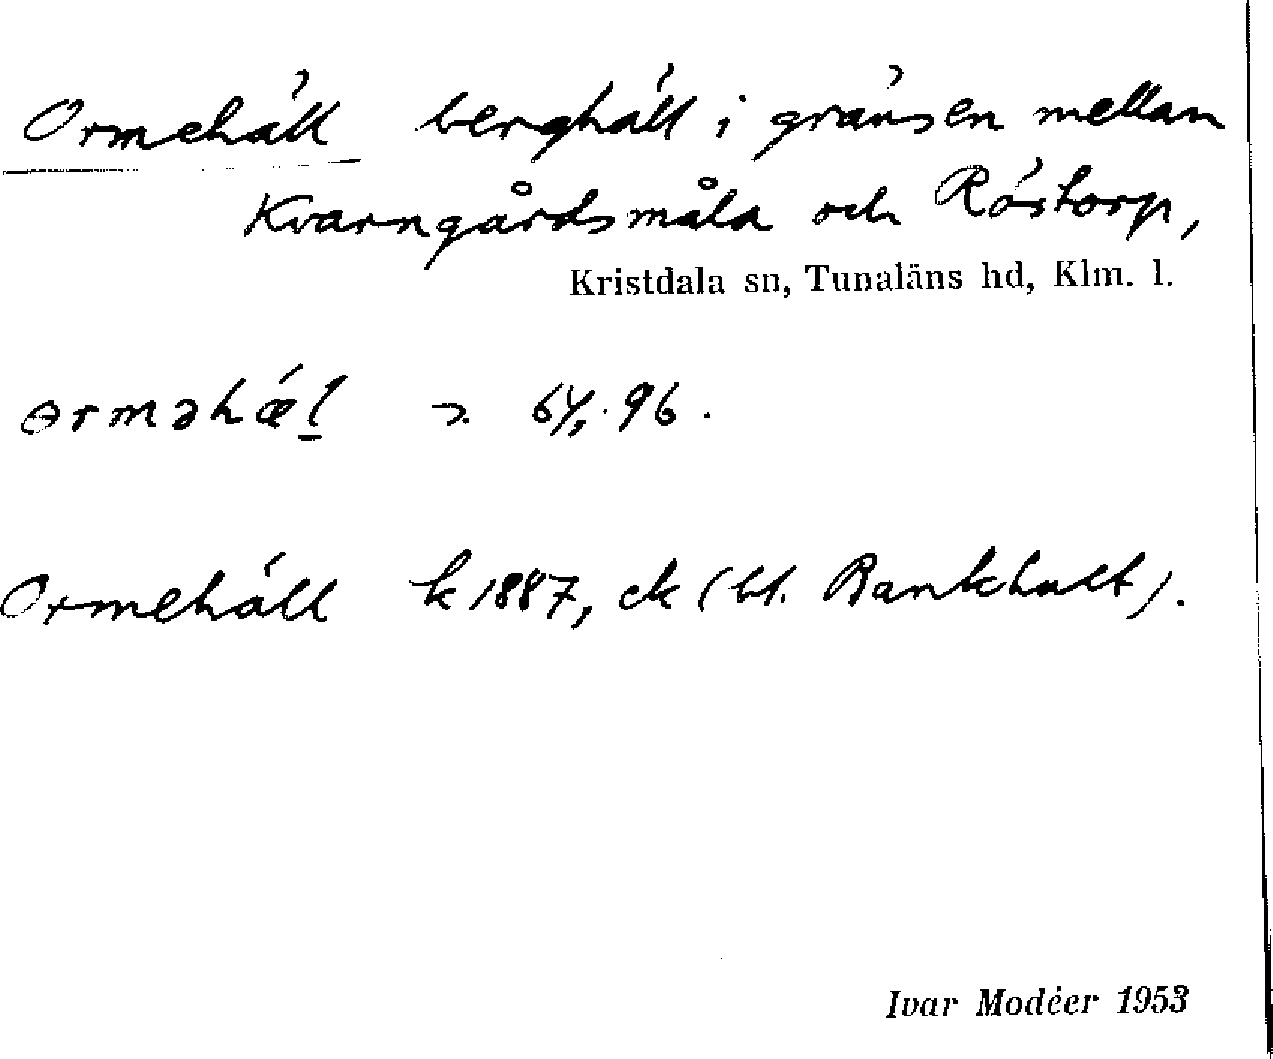 Ormehäll berghäll i gränsen mellan
Kvarngårdsmåla och Röstorp,
Kristdala sn, Tunaläns hd, Klm. l.
ɵrməhæ̀l 64, 96.
Ormehäll k 1887, ek (bl. Bankhult).
Ivar Modéer 1953